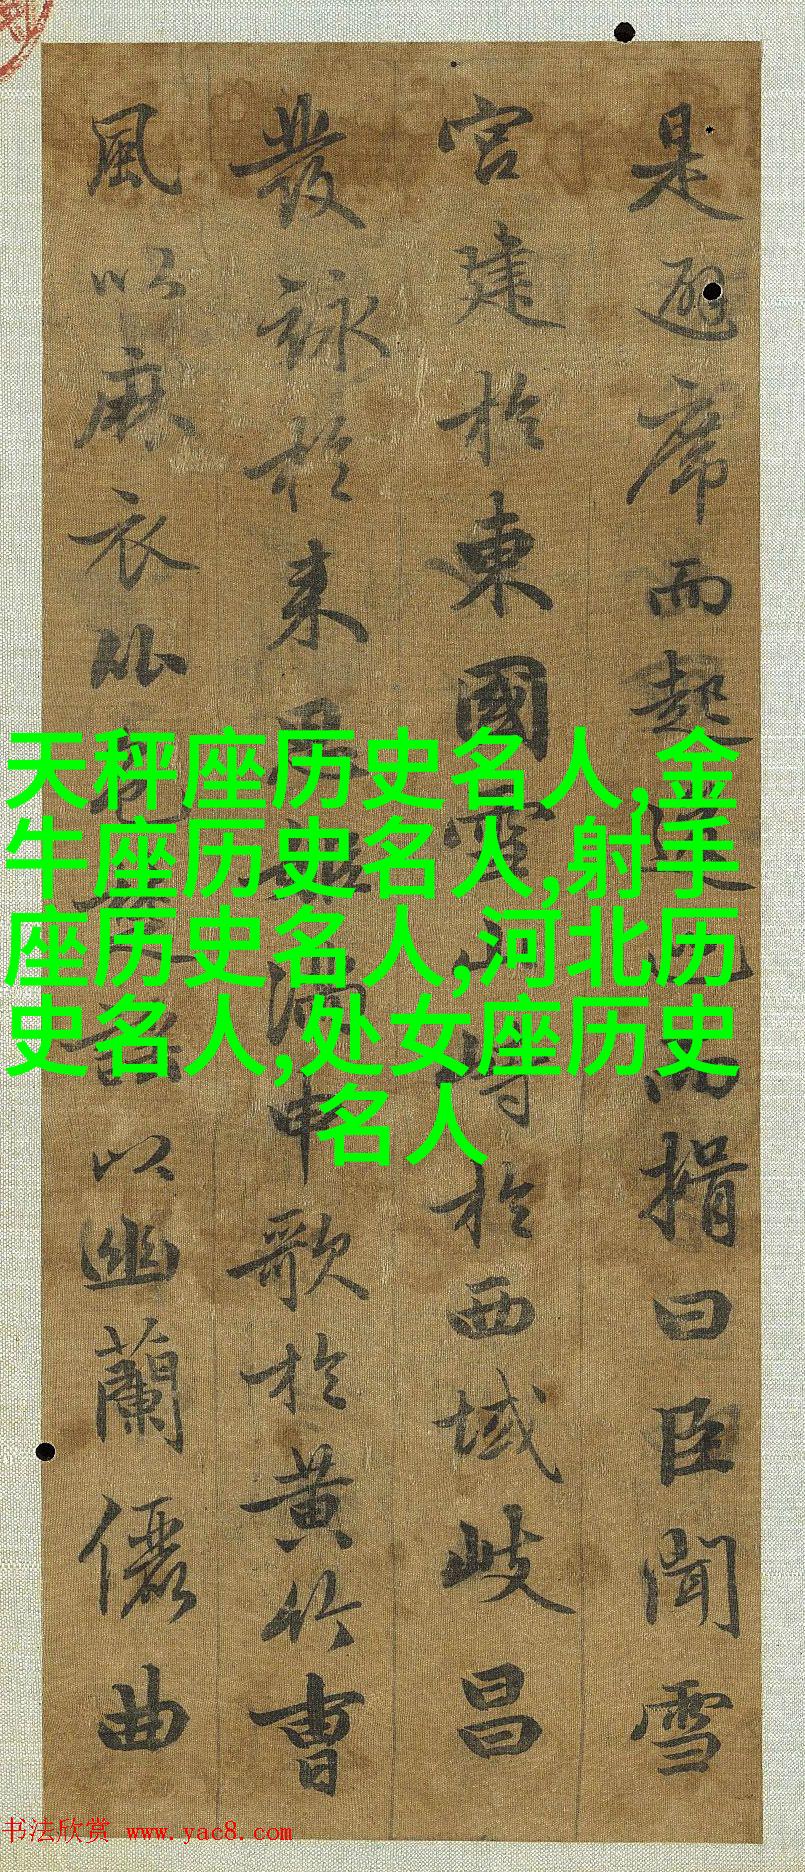 是避席而起逡巡而揖曰臣聞雪
宮建於東國雪山峙於西域岐昌
發詠於來思姬滿申歌於黃竹曹
風以麻衣比色楚謠以幽蘭儷曲
天秤座历史名人,金
牛座历史名人,射手
座历史名人,河北历
史名人,处女座历史
名人
书法欣赏 www.yac8.com